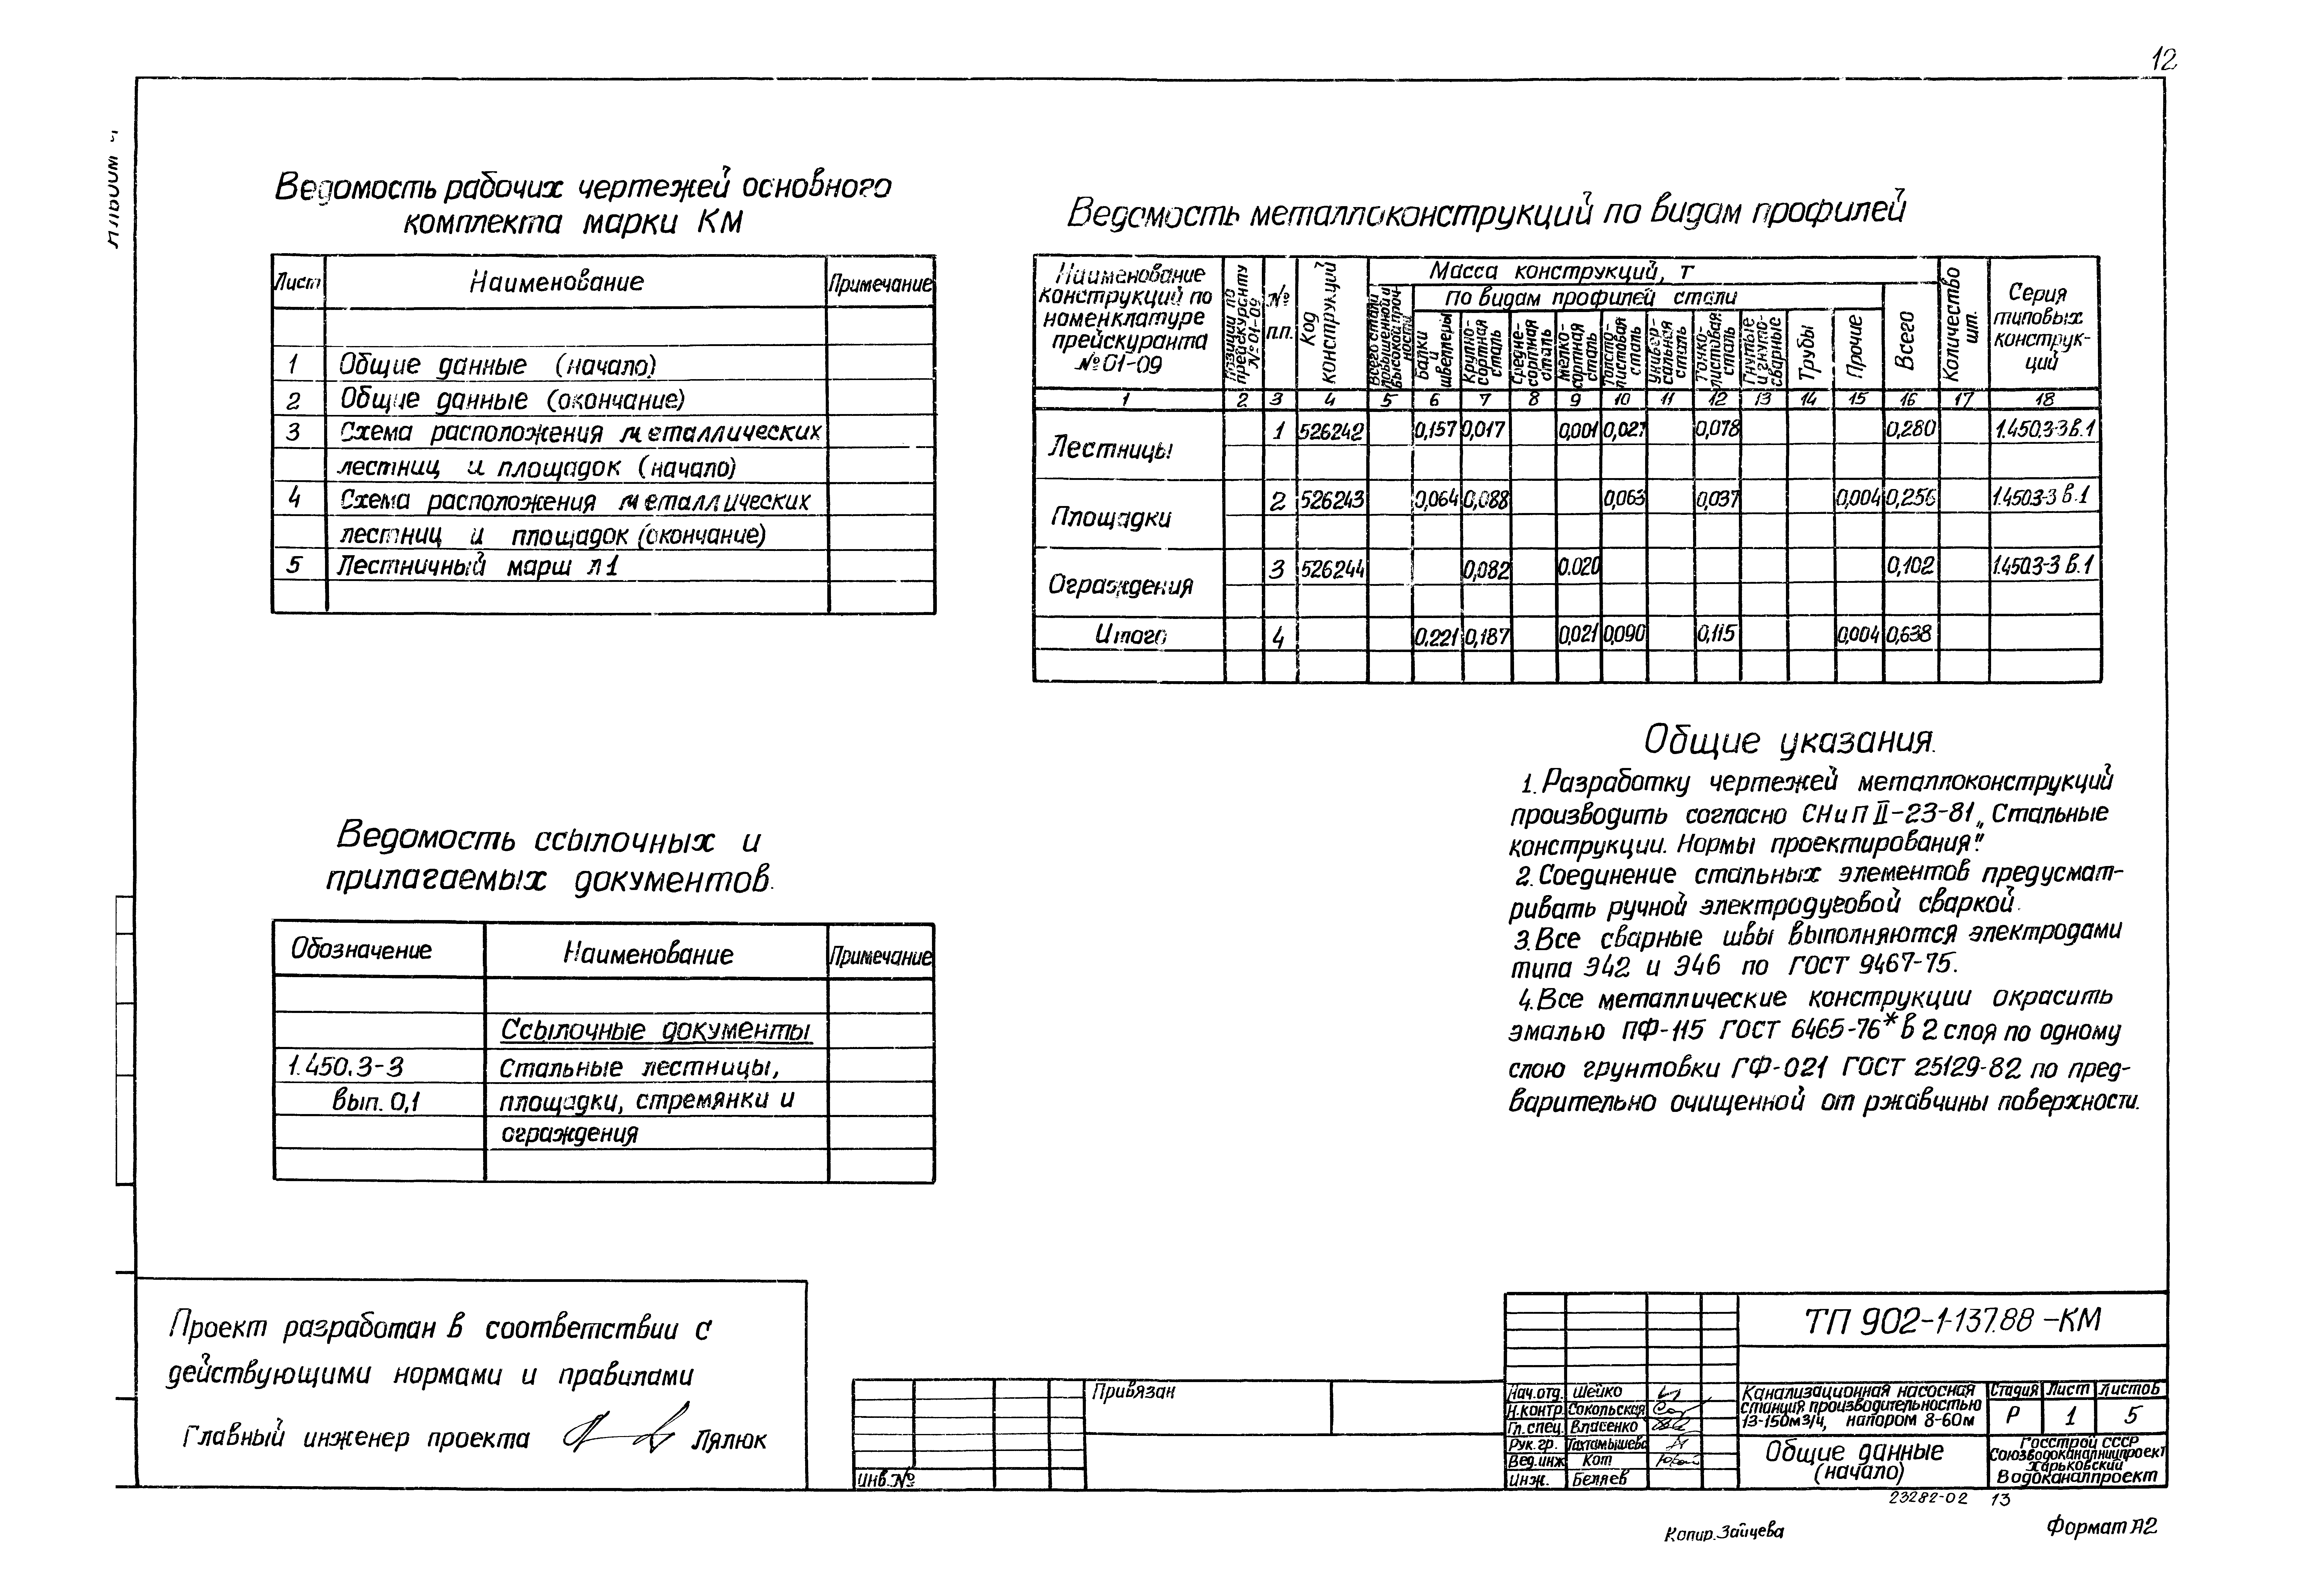 12
Альбом
Ведомость рабочих чертежей основного
комплекта марки КМ
Лист Наименование Примечание
1 Общие данные (начало)
2 Общие данные (окончание)
3 Схема расположения металлических
лестниц и площадок (начало)
4 Схема расположения металлических
лестниц и площадок (окончание)
5 Лестничный марш Л1
Ведомость металлоконструкций по видам профилей
Наименование
конструкций по
номенклатуре
прейскуранта
№ 01-09
Позиции по
прейскуранту
№ 01-09
№
п.п.
Код
конструкций
Масса конструкций, т
Всего стали
повышенной и
высокой проч-
ности
по видам профилей стали
Балки
и
швеллеры
Крупно-
сортная
сталь
Средне-
сортная
сталь
мелко-
сортная
сталь
Толсто-
листовая
сталь
универ-
сальная
сталь
Тонко-
листовая
сталь
Гнутые
и гнуто-
сварные
Трубы
Прочие
Всего
Количество
шт.
Серия
типовых
конструк-
ций
1 2 3 4 5 6 7 8 9 10 11 12 13 14 15 16 17 18
Лестницы 1 526242 0,157 0,017 0,001 0,027 0,078 0,280 1.450.3-3 В.1
Площадки 2 526243 0,064 0,088 0,063 0,037 0,004 0,256 1.450.3-3 В.1
Ограждения 3 526244 0,082 0.020 0,102 1.450.3-3 В.1
Итого 4 0,221 0,187 0,021 0,090 0,115 0,004 0,638
Общие указания.
1. Разработку чертежей металлоконструкций
производить согласно СНиП II-23-81 „Стальные
конструкции. Нормы проектирования".
2. Соединение стальных элементов предусмат-
ривать ручной электродуговой сваркой.
3. Все сварные швы выполняются электродами
типа Э42 и Э46 по ГОСТ 9467-75.
4. Все металлические конструкции окрасить
эмалью ПФ-115 ГОСТ 6465-76* в 2 слоя по одному
слою грунтовки ГФ-021 ГОСТ 25129-82 по пред-
варительно очищенной от ржавчины поверхности.
Ведомость ссылочных и
прилагаемых документов.
Обозначение Наименование Примечание
Ссылочные документы
1.450.3-3 Стальные лестницы,
вып. 0,1 площадки, стремянки и
ограждения
Проект разработан в соответствии с
действующими нормами и правилами
Главный инженер проекта Лялюк
Привязан
Инв.№
ТП 902-1-137.88 -КМ
Нач.отд. Шейко
Н.контр. Сокольская
Гл.спец. Власенко
Рук.гр. Тахтамышева
Вед.инж Кот
Инж. Беляев
Канализационная насосная
станция производительностью
13-150м3/ч, напором 8-60м
Стадия Лист Листов
Р 1 5
Общие данные
(начало)
Госстрой СССР
Союзводоканалниипроект
Харьковский
Водоканалпроект
23282-02 13
Копир. Зайцева
Формат А2